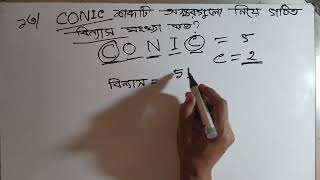 ১৩) CONIC শব্দটি অক্ষরগুলো নিয়ে গঠিত
বিন্যাস সংখ্যা কত?
CONIC = 5
C = 2
বিন্যাস = 5!